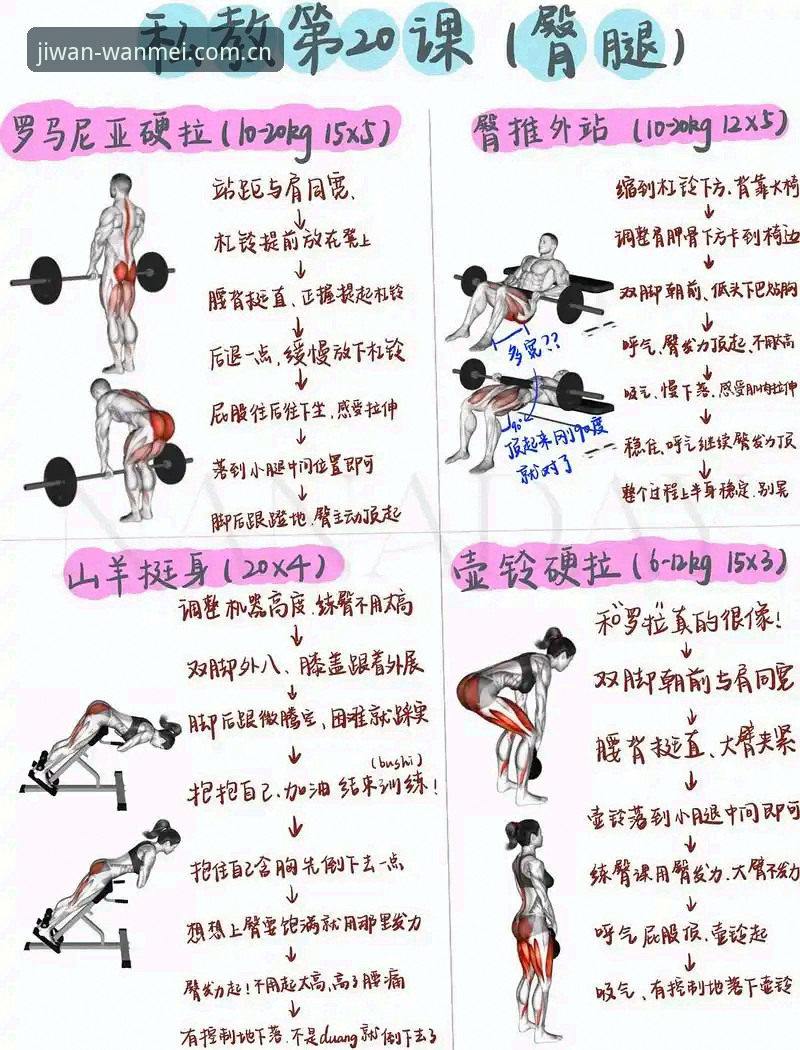 私教第20课（臀腿）
jiwan-wanmei.com.cn
罗马尼亚硬拉（10-20kg 15x5）
站距与肩同宽、
杠铃提前放在凳上
腰背挺直、正握提起杠铃
后退一点，缓慢放下杠铃
屁股往后往下坐，感受拉伸
落到小腿中间位置即可
脚后跟蹬地、臀主动顶起
臀推外站（10-20kg 12x5）
缩到杠铃下方，背靠大椅
调整肩胛骨下方卡到椅边
双脚朝前、低头下巴贴胸
呼气、臀发力顶起、不用太高
吸气、慢下落，感受肌肉拉伸
稳住、呼气继续臀发力顶
整个过程上半身稳定、别晃
多宽??
90°
顶起来刚90度
就对了
山羊挺身（20x4）
调整机器高度、练臀不用太高
双脚外八、膝盖跟着外展
脚后跟微腾空、困难就踩实
(bushi)
抱抱自己、加油 结束训练！
抱住自己含胸先倒下去一点
想想上臀要饱满就用那里发力
臀发力起！不用起太高，高了腰痛
有控制地下落、不是duang就倒下去了
壶铃硬拉（6-12kg 15x3）
和“罗拉”真的很像！
双脚朝前与肩同宽
腰背挺直、大臂夹紧
壶铃落到小腿中间即可
练臀课用臀发力、大臂不发力
呼气屁股顶，壶铃起
吸气、有控制地落下壶铃
NANADAY